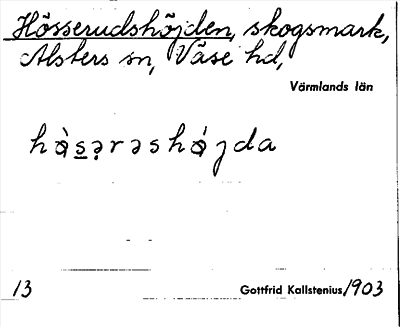 Hösserudshöjden, skogsmark,
Alsters sn, Väse hd,
Värmlands län
hø̀s̲ə̣rəshǿjda
13 Gottfrid Kallstenius 1903